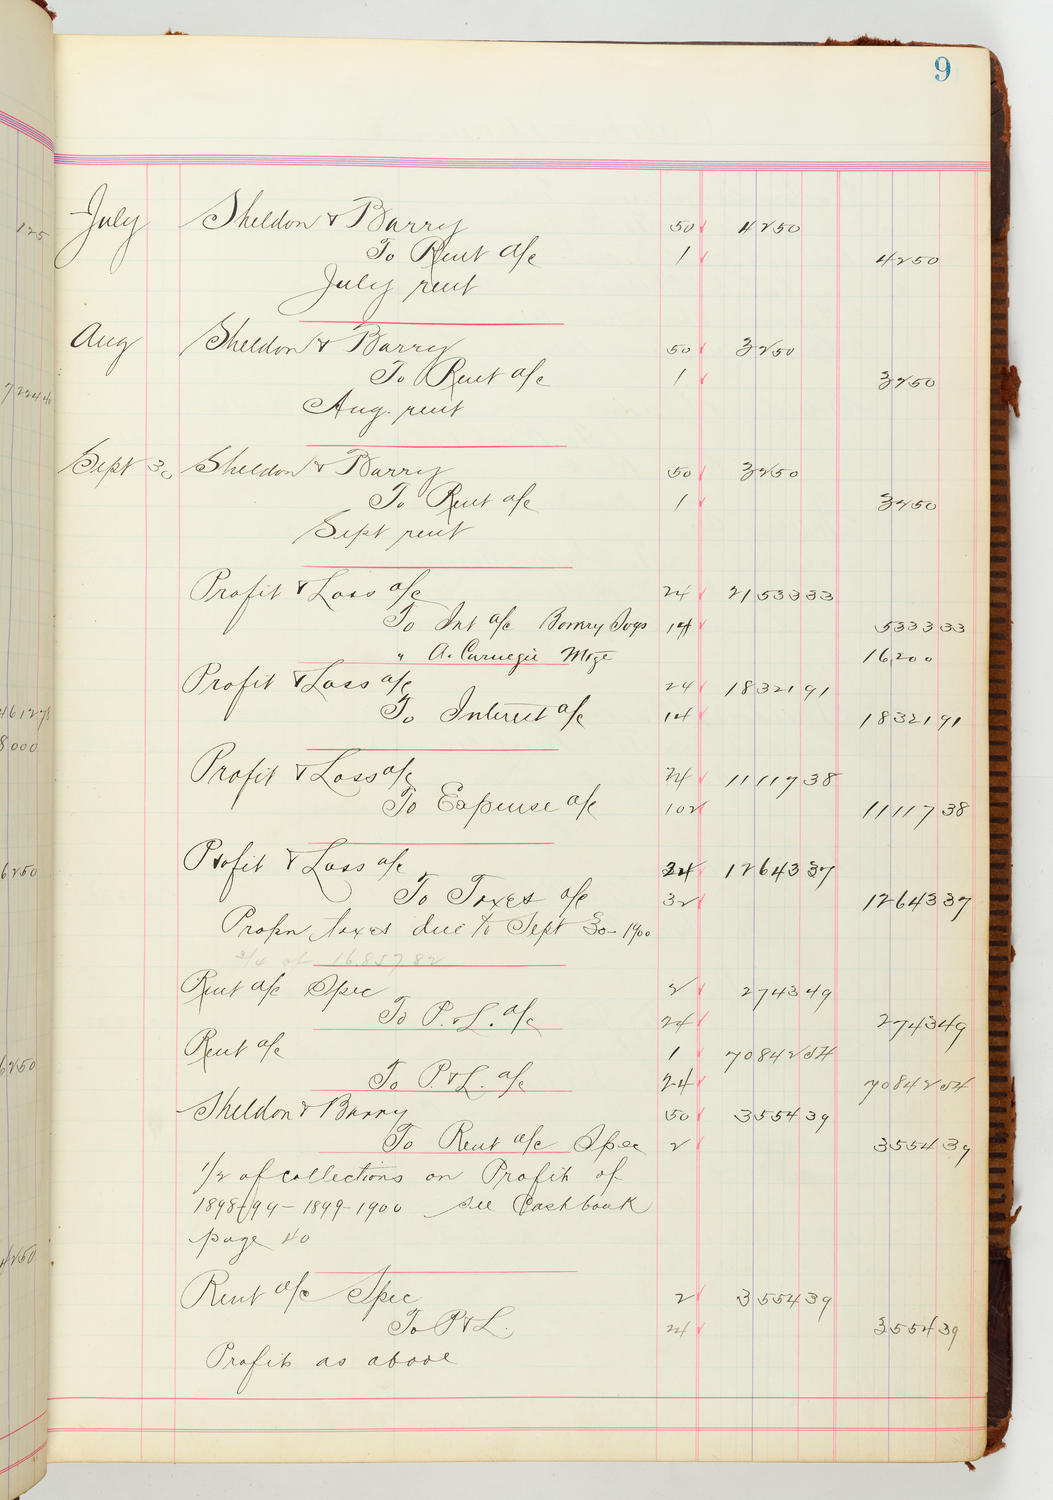 9
July Sheldon & Barry 50 4250
To Rent a/c 1 4250
July rent
Aug Sheldon & Barry 50 3250
To Rent a/c 1 3250
Aug. rent
Sept 30 Sheldon & Barry 50 3250
To Rent a/c 1 3250
Sept rent
Profit & Loss a/c 24 21533 33
To Int a/c 14 5333 33
" A. Carnegie Mtge 16200
Profit & Loss a/c 24 18321 91
To Interest a/c 14 18321 91
Profit & Loss a/c 24 11117 38
To Expense a/c 102 11117 38
Profit & Loss a/c 24 12643 37
To Taxes a/c 32 12643 37
Propn taxes due to Sept 30 - 1900
3/4 of 16.857 82
Rent a/c Spec 2 2743 49
To P. & L. a/c 24 2743 49
Rent a/c 1 70842 54
To P & L. a/c 24 70842 54
Sheldon & Barry 50 3554 39
To Rent a/c Spec 2 3554 39
1/2 of collections on Profit of
1898-99 - 1899-1900 see Cashbook
page 40
Rent a/c Spec 2 3554 39
To P & L. 24 3554 39
Profit as above
125
7224 40
4612 78
8000
6250
6250
4250